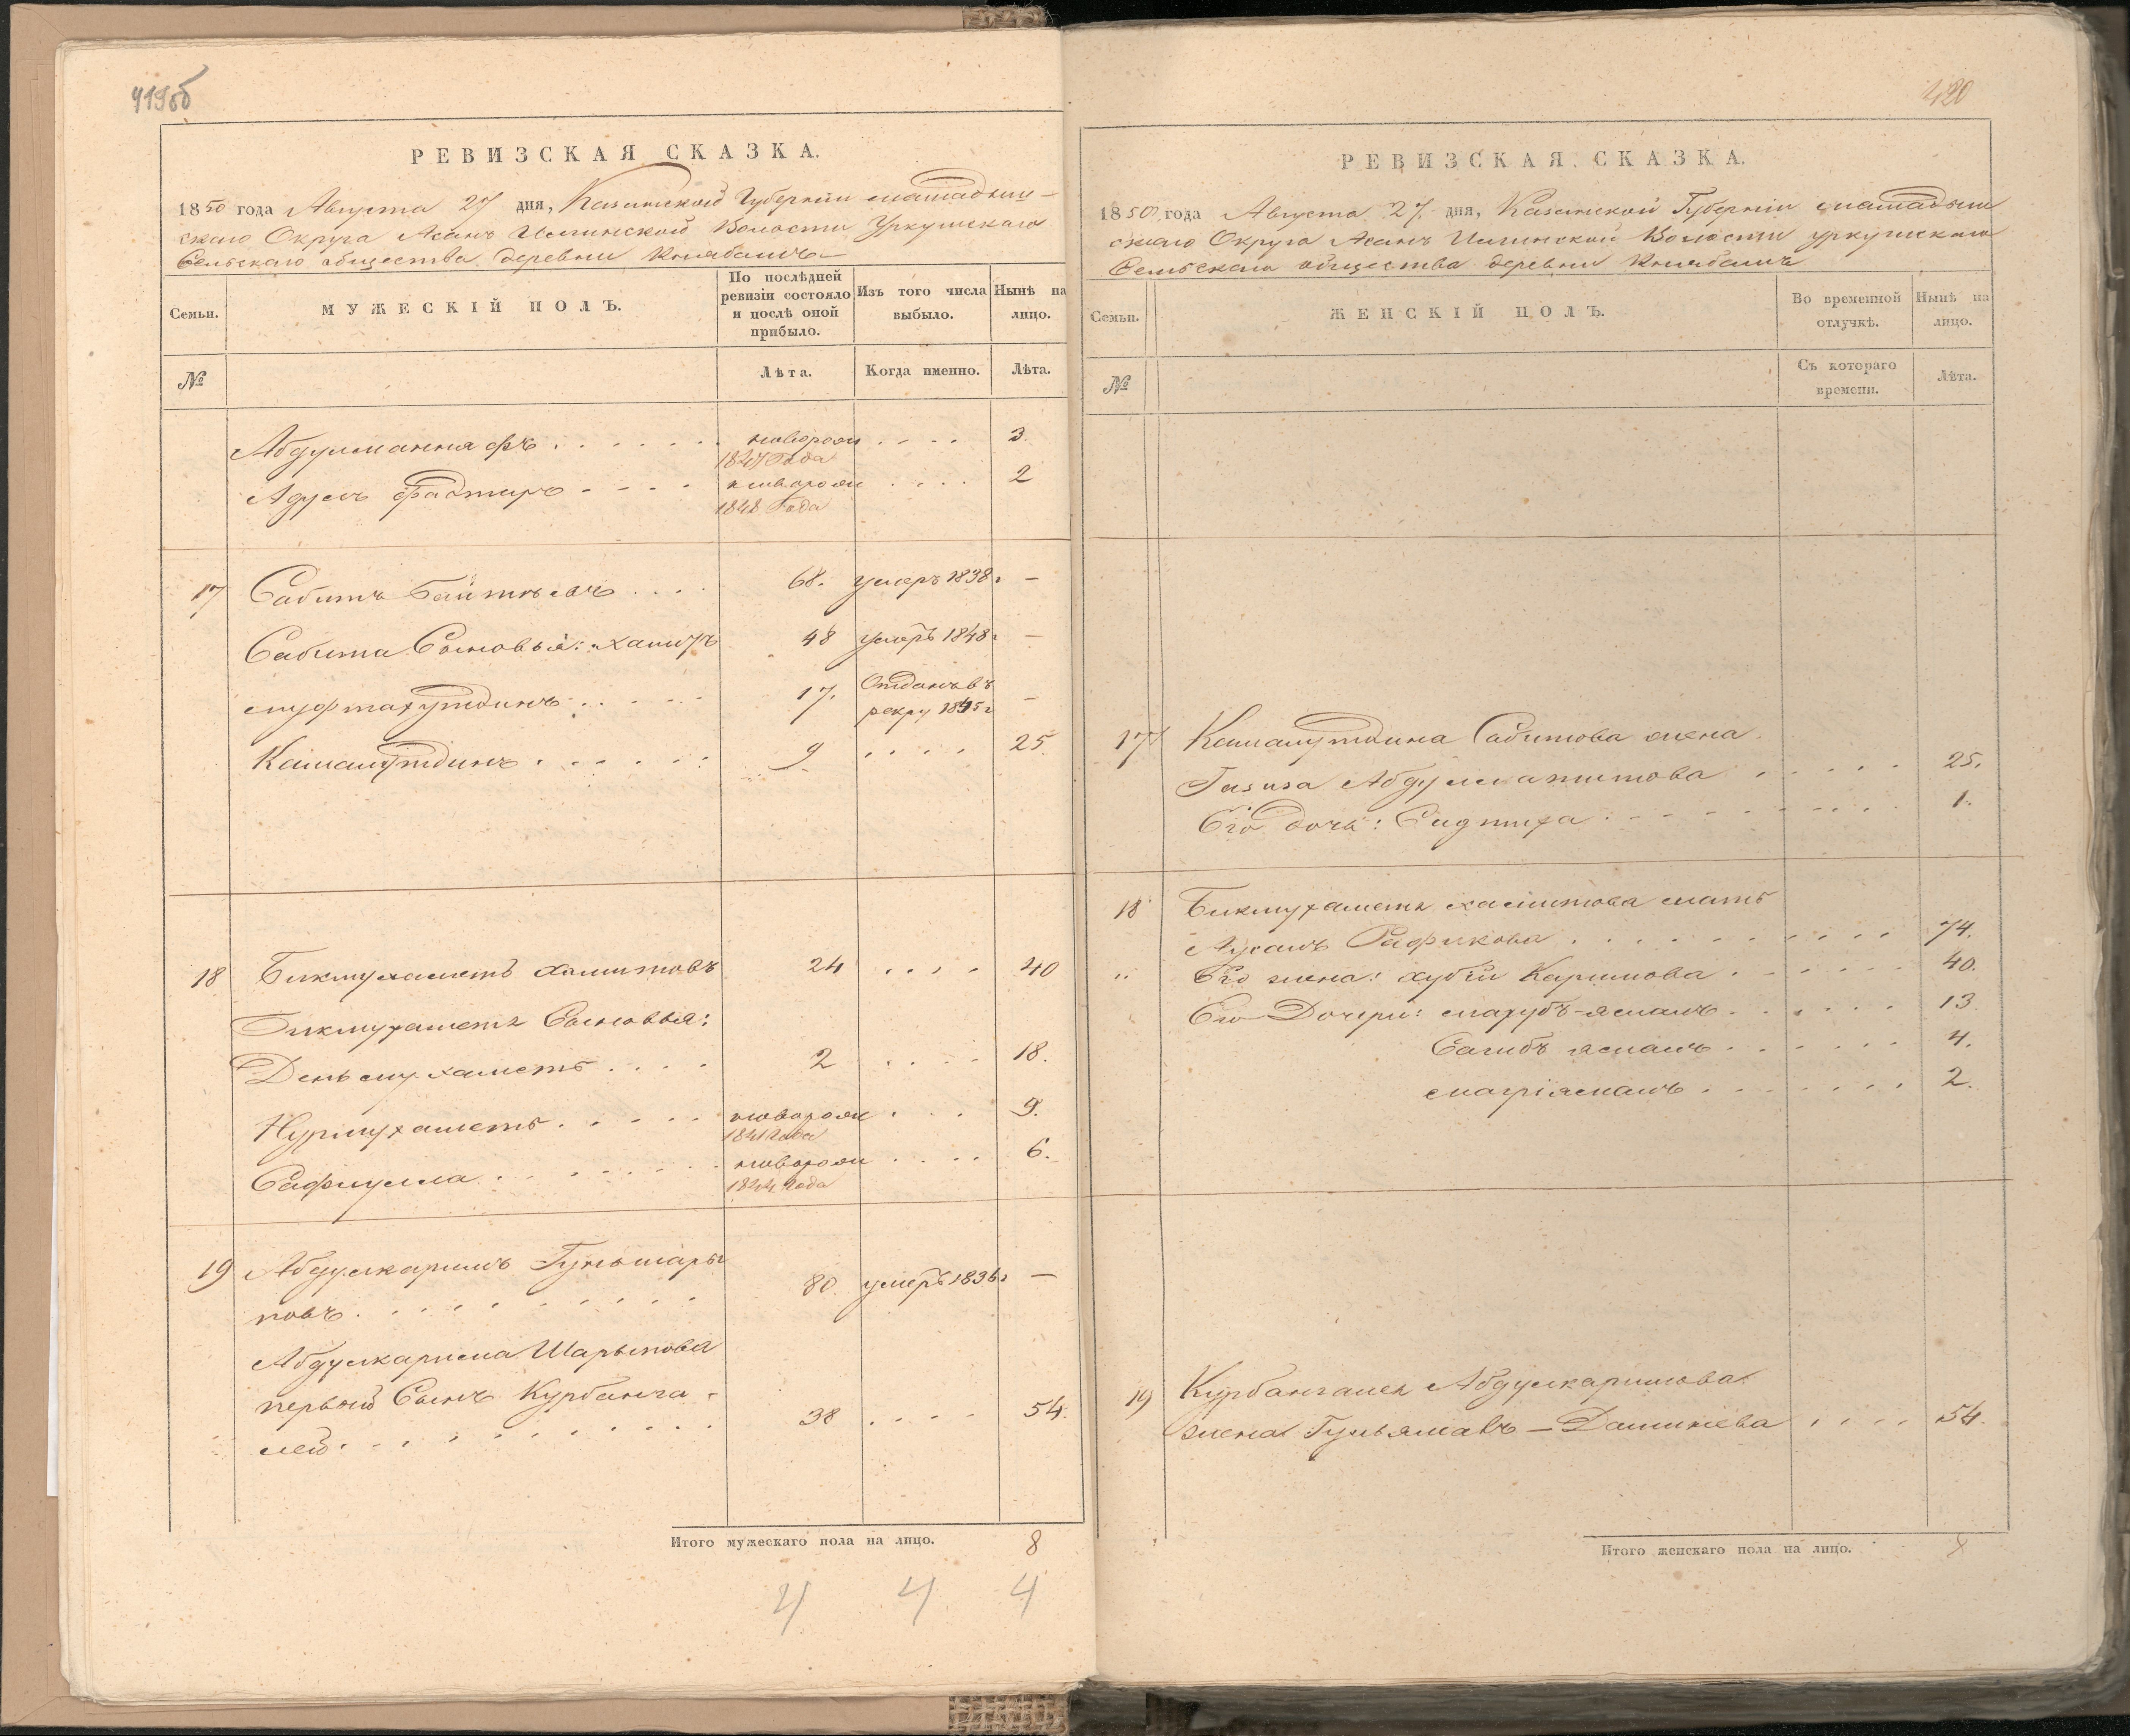 419об
РЕВИЗСКАЯ СКАЗКА.
1850 года Августа 27 дня, Казанской Губерніи мамадыш-
скаго Округа Асанъ Илгинской Волости Уркушскаго
Сельскаго общества деревни Княбашъ
Семьи.
МУЖЕСКІЙ ПОЛЪ.
По послѣдней ревизіи состояло и послѣ оной прибыло.
Изъ того числа выбыло.
Нынѣ на лицо.
№
Лѣта.
Когда именно.
Лѣта.
Абдулманнафъ . . . . . . новорож . . . . 3.
1847 Года
. . . . новорож . . . . 2
1848 Года
17 Сабитъ . . . . 68. умеръ 1838 г —
Сабита Сыновья: 48 умеръ 1848 г —
муфтахутдинъ . . . . . 17. Отданъ въ рекру 1845 г —
Камалутдинъ . . . . . . 9 . . . . 25.
18 Бикмухаметъ Хамитовъ 24 . . . . 40
Бикмухаметя Сыновья:
Деньмухаметъ . . . . 2 . . . . 18.
Нурмухаметъ . . . . . новорож . . . . 9.
1841 Года
Сафиулла . . . . . . . новорож . . . . 6.
1844 Года
19 Абдулкаримъ Гульшары
повъ . . . . . . . . . 80. умеръ 1836 г —
Абдулкарима Шарыпова
первой Сынъ Курбанга-
лей . . . . . . . . . 38 . . . . 54.
Итого мужескаго пола на лицо. 8
4 4 4
420
РЕВИЗСКАЯ СКАЗКА.
1850 года Августа 27 дня, Казанской Губерніи мамадыш
скаго Округа Асанъ Илгинской Волости уркушскаго
Сельскаго общества деревни Княбашъ
Семьи.
ЖЕНСКІЙ ПОЛЪ.
Во временной отлучкѣ.
Нынѣ на лицо.
№
Съ котораго времени.
Лѣта.
17 Камалутдина Сабитова жена
Газиза . . . . . 25.
Его дочь: . . . . . . . . 1.
18 Бикмухаметя хамитова мать
Рафикова . . . . . . . . . 74.
" Его жена: хубби Каримова . . . . . . 40.
Его Дочери: махубъ-ямалъ . . . . . . 13.
Сагибъ ямалъ . . . . . . 4.
магріямалъ . . . . . . 2.
19 Курбангалея Абдулкаримова
жена Гульямалъ — . . . . 54.
Итого женскаго пола на лицо. 8